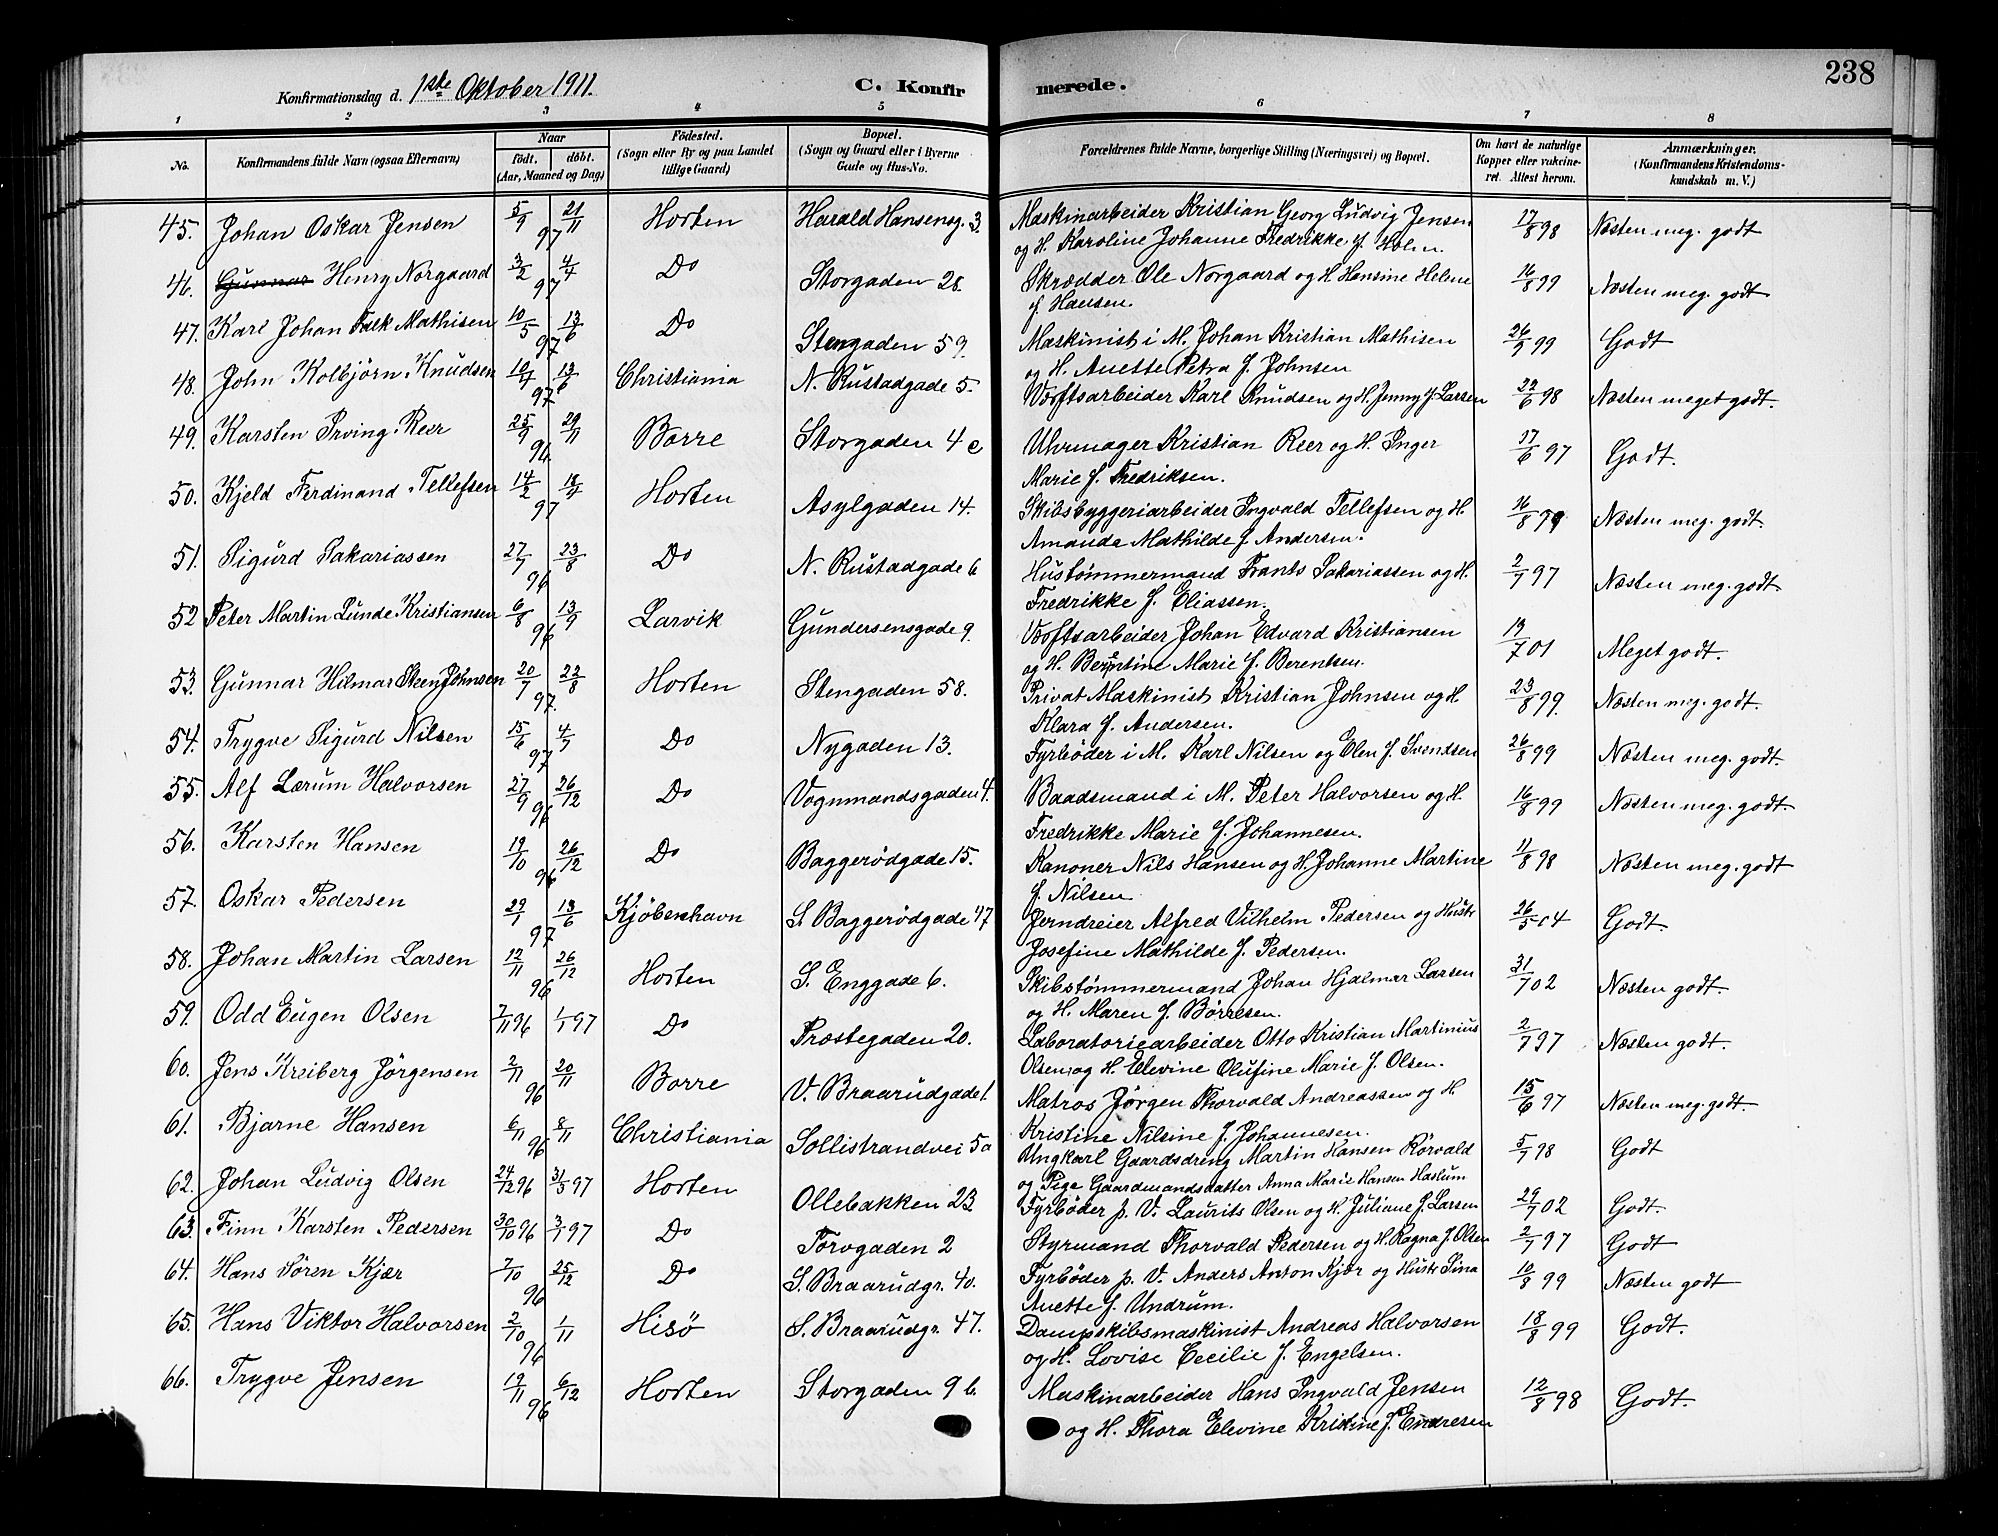 238
Konfirmationsdag d. 1ste Oktober 1911. C. Konfirmerede.
1 2 3 4 5 6 7 8
No. Konfirmandens fulde Navn (ogsaa Efternavn) Naar født, døbt. (Aar, Maaned og Dag) Födested. (Sogn eller By og paa Landet tillige Gaard) Bopæl. (Sogn og Gaard eller i Byerne Gade og Hus-No. Forældrenes fulde Navne, borgerlige Stilling (Næringsvei) og Bopæl. Om havt de naturlige Kopper eller vakcineret. Attest herom. Anmærkninger. (Konfirmandens Kristendomskundskab m. V.)
45. Johan Oskar Jensen 5/9 97 21/11 Horten Harald Hansensg. 3. Maskinarbeider Kristian Georg Ludvig Jensen 17/8 98 Næsten meg. godt
og H. Karoline Johanne Fredrikke f. Holm.
46. Gunnar Henry Norgaard 3/2 97 4/4 Do Storgaden 28. Skrædder Ole Norgaard og H. Hansine Helene 16/8 99 Næsten meg. godt
f. Hansen.
47. Karl Johan Falk Mathisen 10/5 97 13/6 Do Stengaden 59. Maskinist i M. Johan Kristian Mathisen 26/9 99 Godt
og H. Anette Petra f. Johnsen
48. John Kolbjörn Knudsen 10/4 97 13/6 Christiania N. Rustadgade 5. Værftsarbeider Karl Knudsen og H. Jenny f. Larsen 22/6 98 Næsten meget godt.
49. Karsten Irving Reer 25/9 96 29/11 Borre Storgaden 4 c Uhrmager Kristian Reer og H. Inger 17/6 97 Godt.
Marie f. Fredriksen.
50. Kjeld Ferdinand Tellefsen 14/2 97 18/4 Horten Asylgaden 14. Skibsbyggeriarbeider Ingvald Tellefsen og H. 16/8 79 Næsten meg. godt.
Amanda Mathilde f. Andersen.
51. Sigurd Sakariassen 27/7 96 23/8 Do N. Rustadgade 6 Hustømmermand Frants Sakariassen og H. 2/7 97 Næsten meg. godt.
Fredrikke f. Eliassen.
52 Peter Martin Lunde Kristiansen 6/8 96 13/9 Larvik Gundersensgade 9. Værftsarbeider Johan Edvard Kristiansen 19/7 01 Meget godt.
og H. Berntine Marie f. Berentsen.
53. Gunnar Hilmar Steen Johnsen 20/7 97 22/8 Horten Stengaden 58. Privat Maskinist Kristian Johnsen og H. 23/8 99. Næsten meg. godt.
Klara f. Andersen.
54. Trygve Sigurd Nilsen 15/6 97 4/7 Do Nygaden 13. Fyrbøder i M. Karl Nilsen og Elen f. Svendsen 26/8 99 Næsten meg. godt.
55. Alf Lærum Halvorsen 27/9 96 26/12 Do Vognmandsgaden 4. Baadsmand i M. Peter Halvorsen og H. 16/8 99 Næsten meg. godt.
Fredrikke Marie f. Johannesen.
56. Karsten Hansen 19/10 96 26/12 Do Baggerødgade 15. Kanoner Nils Hansen og H. Johanne Martine 11/8 98 Næsten meg. godt
f. Nilsen
57. Oskar Pedersen 29/1 97 13/6 Kjøbenhavn S. Baggerödgade 47 Jerndreier Alfred Vilhelm Pedersen og Hustr 26/5 04 Godt.
Josefine Mathilde f. Pedersen.
58. Johan Martin Larsen 12/11 96 26/12 Horten S. Enggade 6. Skibstømmermand Johan Hjalmar Larsen 31/7 02 Næsten godt.
og H. Maren f. Børresen.
59. Odd Eugen Olsen 7/11 96 1/1 97 Do Præstegaden 20. Laboratoriearbeider Otto Kristian Martinius 2/7 97 Næsten godt.
Olsen og H. Elevine Olufine Marie f. Olsen.
60. Jens Kreiberg Jörgensen 2/11 96 20/11 Borre V. Braarudgade 1. Matros Jørgen Thorvald Andreassen og H. 15/6 97 Næsten meg. godt.
Kristine Nilsine f. Johannesen.
61. Bjarne Hansen 6/11 96 8/11 Christiania Sollistrandvei 5a Ungkarl Gaardsdreng Martin Hansen Rörvald 5/7 98 Godt
og Pige Gaardmandsdatter Anna Marie Hansen Haslum
62. Johan Ludvig Olsen 24/12 96 31/5 97 Horten Ollebakken 23 Fyrbøder p. V. Laurits Olsen og H. Juliane f. Larsen 29/7 02 Godt.
63. Finn Karsten Pedersen 30/10 96 3/1 97 Do Torvgaden 2 Styrmand Thorvald Pedersen og H. Ragna f. Olsen 2/7 97 Godt
64. Hans Sören Kjær 7/10 96 25/12 Do S. Braarudgr. 40. Fyrbøder p. V. Anders Anton Kjær og Hustr Lina 10/8 99 Næsten godt
Anette f. Undrum.
65. Hans Viktor Halvorsen 2/10 96 1/11 Hisö S. Braarudgr. 47. Dampskibsmaskinist Andreas Halvorsen 18/8 99 Godt.
og H. Lovise Cecilie f. Engelsen.
66. Trygve Jensen 19/11 96 6/12 Horten Storgaden 9 b. Maskinarbeider Hans Ingvald Jensen 12/8 98 Godt.
og H. Thora Elevine Kristine f. Endresen